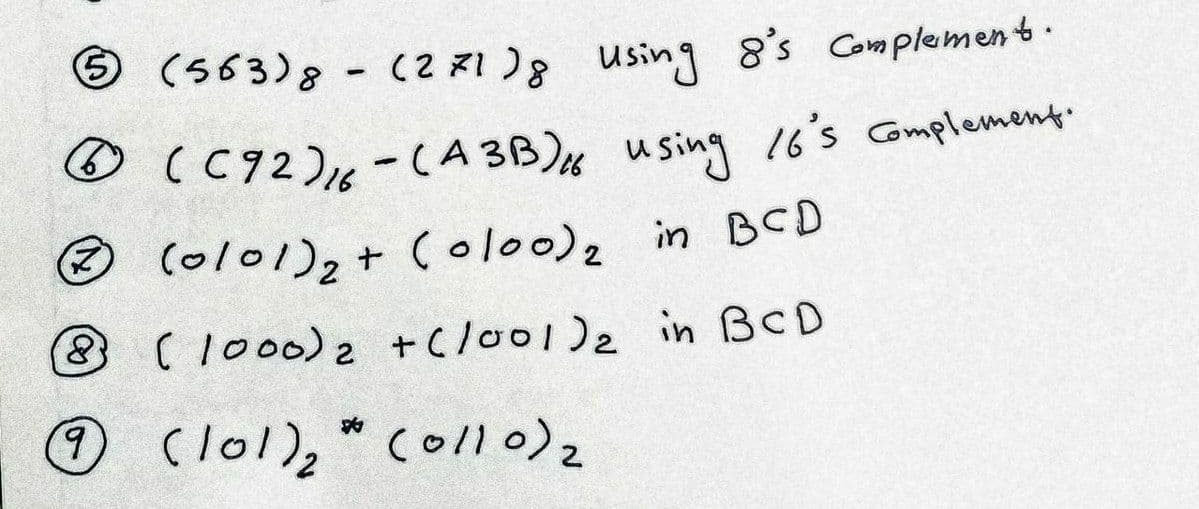 ⑤ (563)₈ - (271)₈ using 8's Complement.
⑥ (C92)₁₆ - (A3B)₁₆ using 16's Complement.
⑦ (0101)₂ + (0100)₂ in BCD
⑧ (1000)₂ + (1001)₂ in BCD
⑨ (101)₂ * (0110)₂